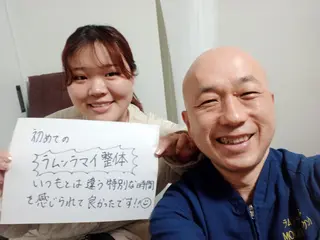 初めての
ラムシラマイ整体
いつもとは違う特別な時間
を感じられて良かったです!!